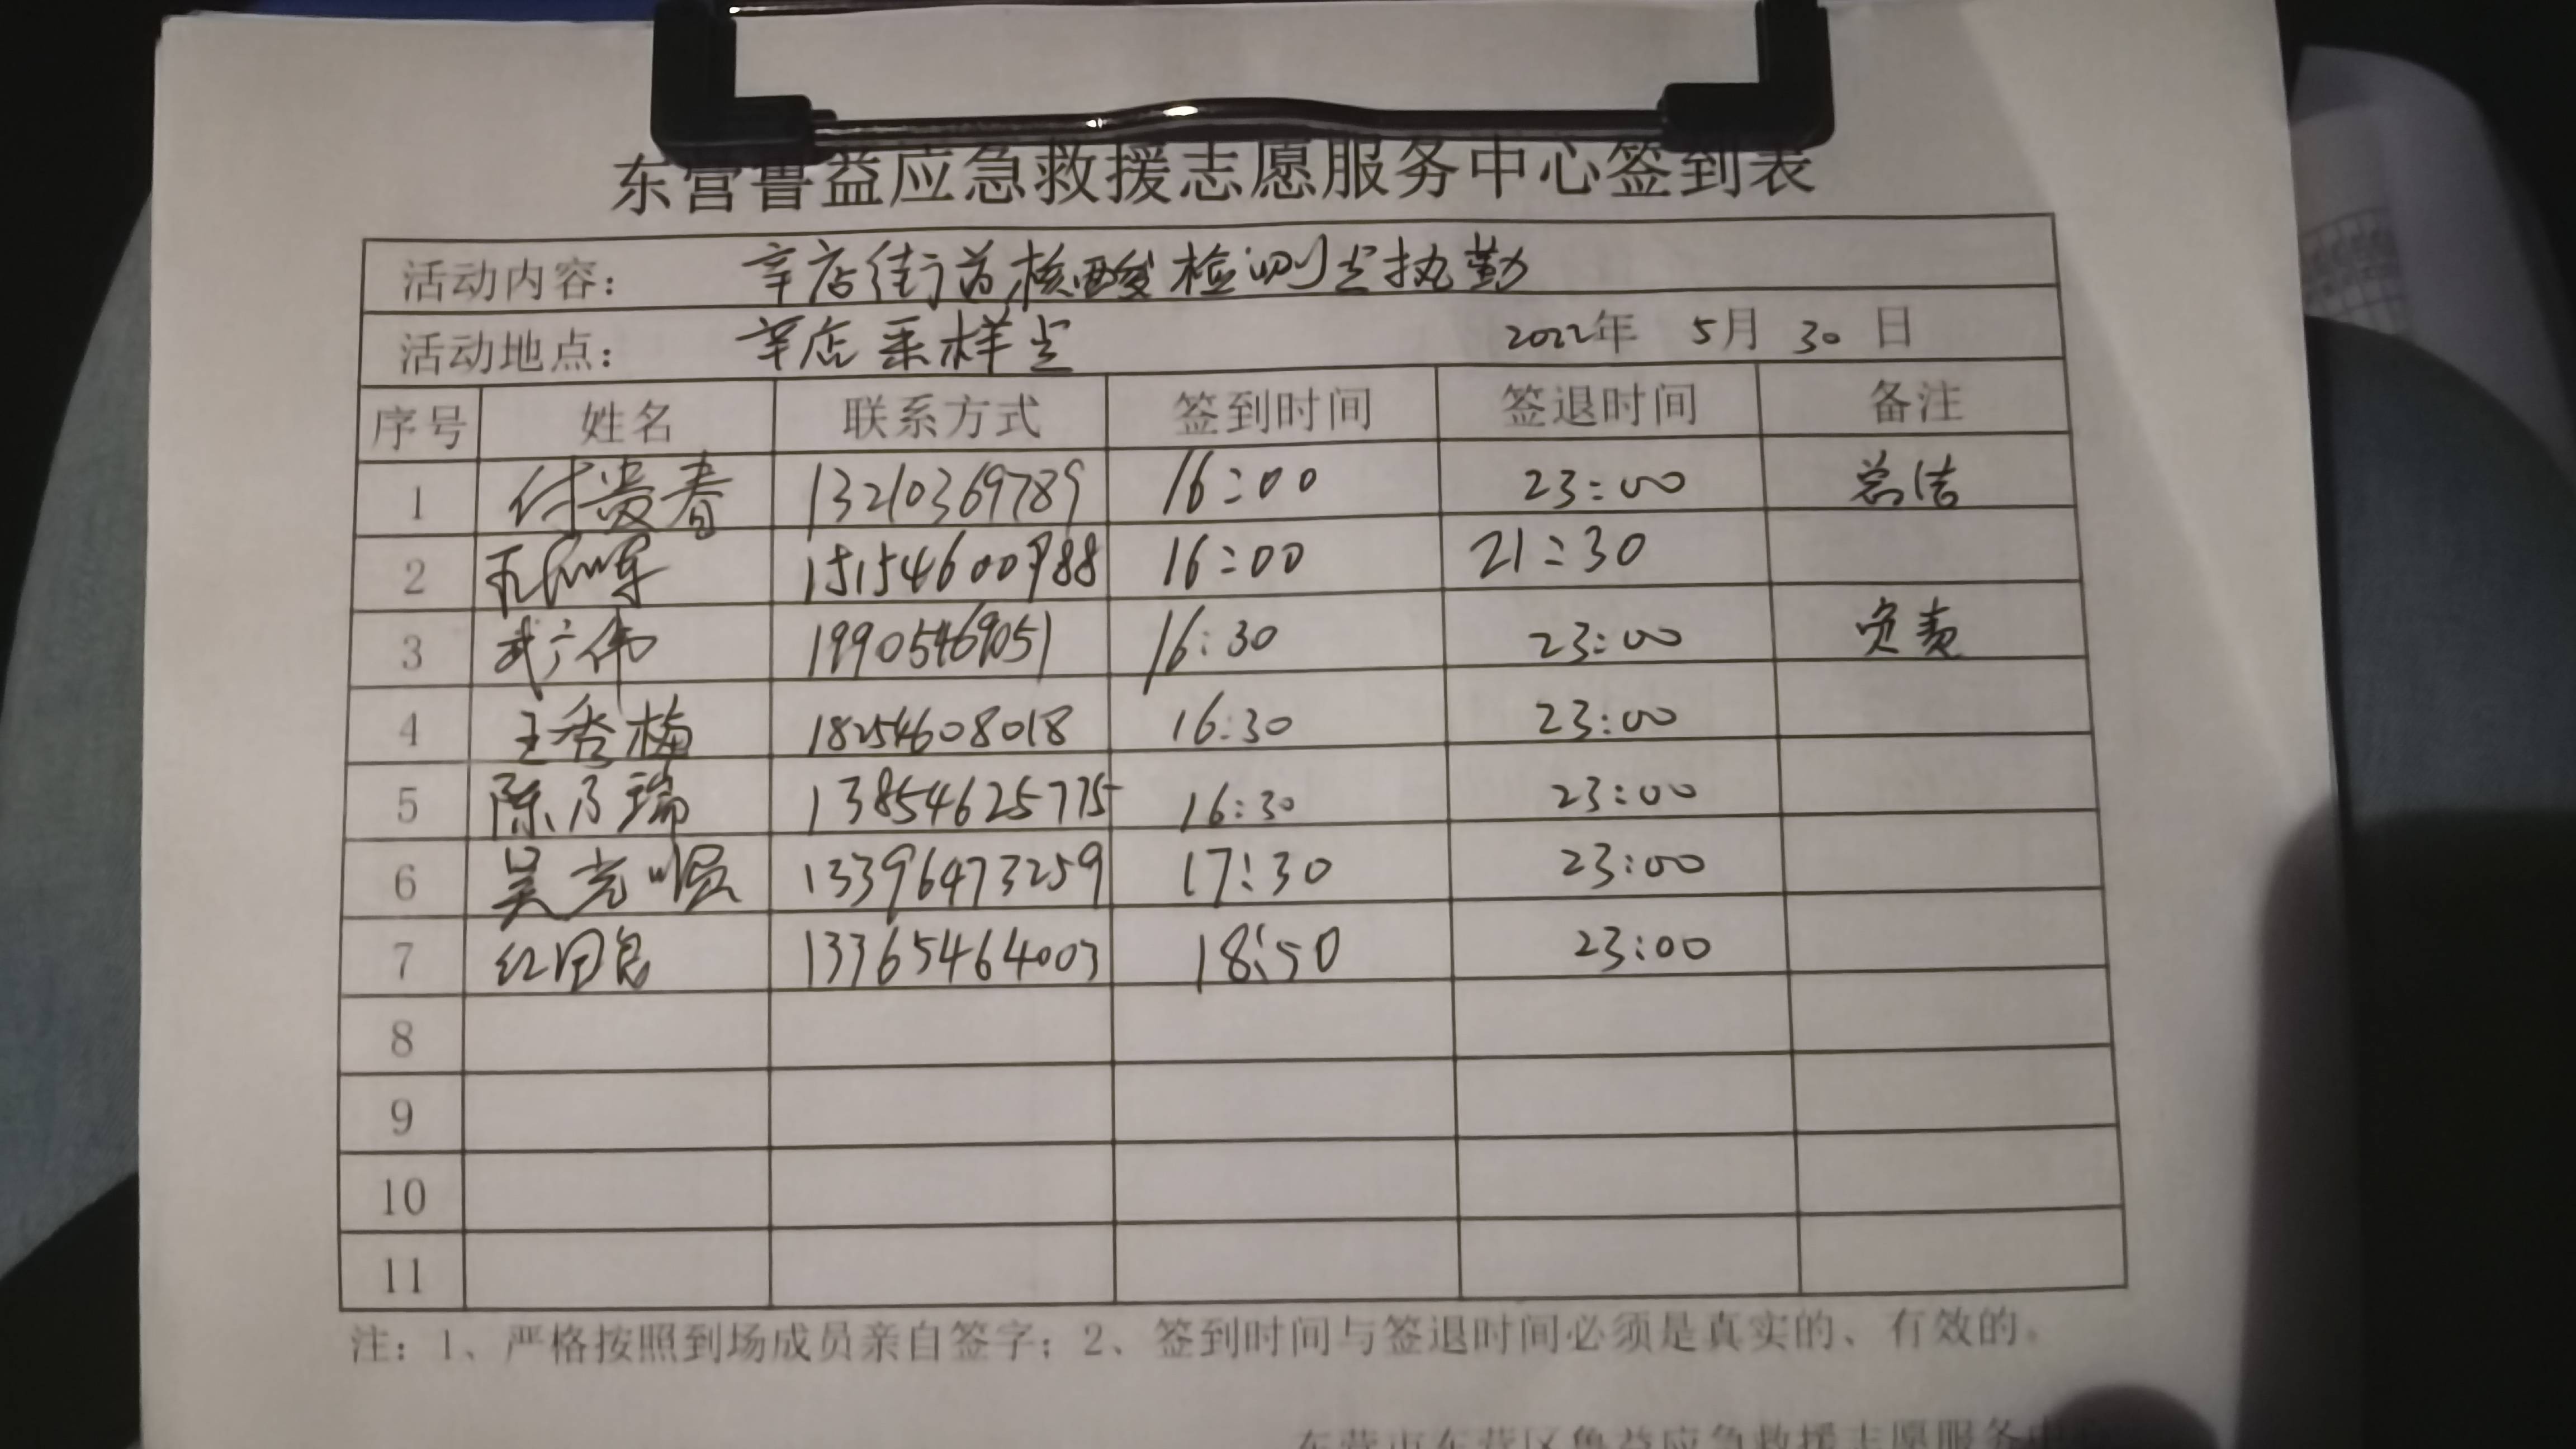 东营鲁益应急救援志愿服务中心签到表
活动内容： 辛店街道核酸检测点执勤
活动地点： 辛店采样点 2022年 5月 30日
序号 姓名 联系方式 签到时间 签退时间 备注
1 付贵春 13210369789 16:00 23:00 总结
2 15154600988 16:00 21:30
3 武广伟 19905469051 16:30 23:00 负责
4 王秀梅 18254608018 16:30 23:00
5 陈乃瑞 13854625775 16:30 23:00
6 吴光顺 13396473259 17:30 23:00
7 13365464003 18:50 23:00
8
9
10
11
注：1、严格按照到场成员亲自签字；2、签到时间与签退时间必须是真实的、有效的。
东营市东营区鲁益应急救援志愿服务中